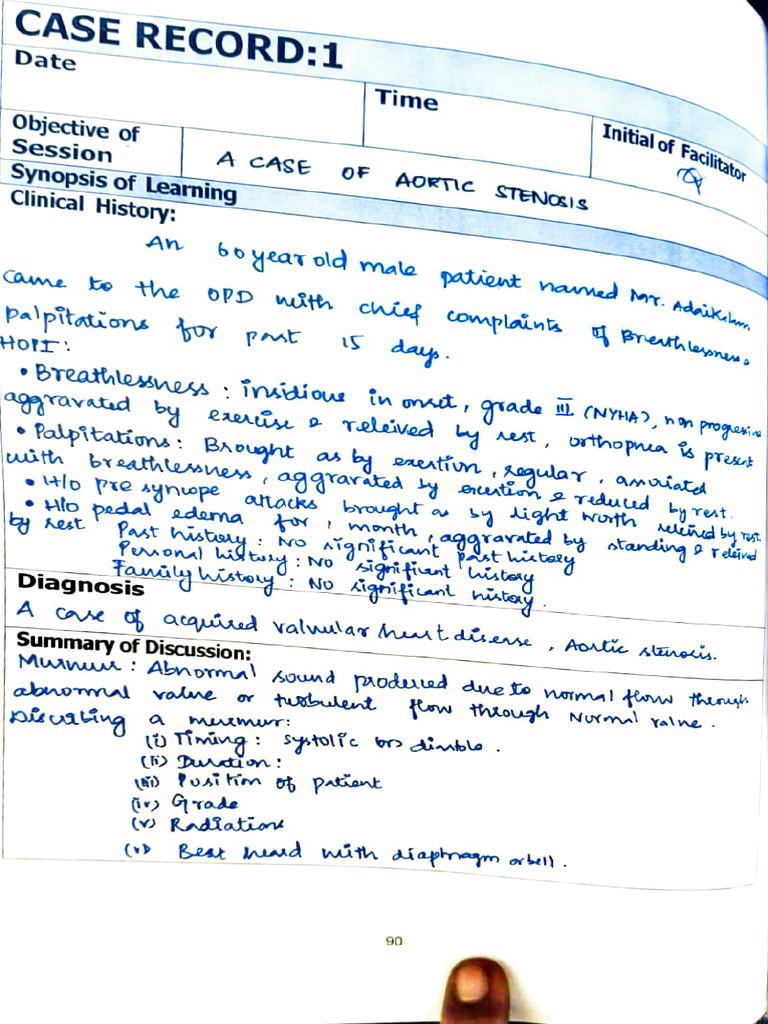 CASE RECORD:1
Date
Time
Initial of Facilitator
Objective of Session
A CASE OF AORTIC STENOSIS
Synopsis of Learning
Clinical History:
An 60 year old male patient named Mr. Adaikalam
came to the OPD with chief complaints of Breathlessness &
palpitations for past 15 days.
HOPI:
• Breathlessness : insidious in onset, grade III (NYHA), non progressive
aggravated by exercise & releived by rest, orthopnea is present
• Palpitations : Brought as by exertion, regular, associated
with breathlessness, aggravated by exertion & reduced by rest.
• H/o pre syncope attacks brought as by light worth releived by rest.
• H/o pedal edema for 1 month, aggravated by standing & releived
by rest
Past history : No significant past history
Personal history : No significant history
Family history : No significant history.
Diagnosis
A case of acquired valvular heart disease, Aortic stenosis.
Summary of Discussion:
Murmur : Abnormal sound produced due to normal flow through
abnormal valve or turbulent flow through Normal valve.
Discribing a murmur:
(i) Timing : systolic
(ii) Duration :
(iii) Position of patient
(iv) Grade
(v) Radiation
(vi) Best heard with diaphragm or bell.
90